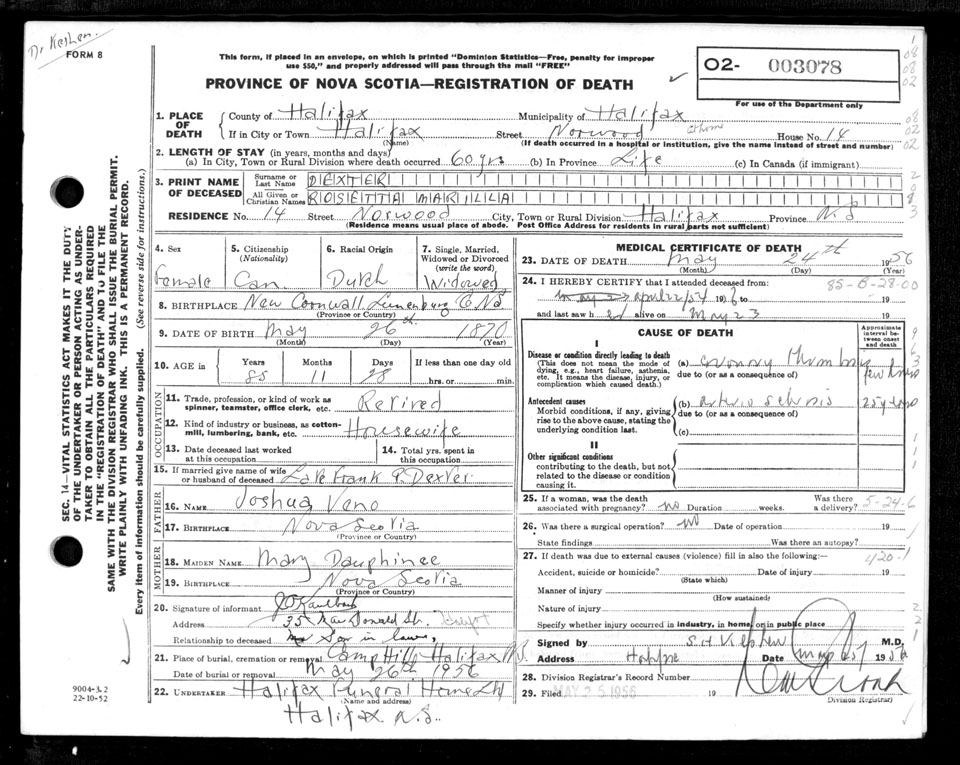 Dr Keshen.
FORM 8
This form, if placed in an envelope, on which is printed "Dominion Statistics—Free, penalty for improper
use $50," and properly addressed will pass through the mail "FREE"
PROVINCE OF NOVA SCOTIA—REGISTRATION OF DEATH
02- 003078
For use of the Department only
1. PLACE OF DEATH
County of Halifax Municipality of Halifax
If in City or Town Halifax Street Norwood at home House No. 14
(Name) (If death occurred in a hospital or institution, give the name instead of street and number)
2. LENGTH OF STAY (in years, months and days)
(a) In City, Town or Rural Division where death occurred 60 yrs (b) In Province Life (c) In Canada (if immigrant)
3. PRINT NAME OF DECEASED
Surname or Last Name DEXTER
All Given or Christian Names ROSETTA MARILLA
RESIDENCE No. 14 Street Norwood City, Town or Rural Division Halifax Province N.S
(Residence means usual place of abode. Post Office Address for residents in rural parts not sufficient)
4. Sex
Female
5. Citizenship
(Nationality)
Can.
6. Racial Origin
Dutch
7. Single, Married, Widowed or Divorced
(write the word)
Widowed
8. BIRTHPLACE New Cornwall Lunenburg Co NS
(Province or Country)
9. DATE OF BIRTH May 26th 1870
(Month) (Day) (Year)
10. AGE in
Years Months Days If less than one day old
85 11 28 hrs. or min.
OCCUPATION
11. Trade, profession, or kind of work as
spinner, teamster, office clerk, etc. Retired
12. Kind of industry or business, as cotton-
mill, lumbering, bank, etc. Housewife
13. Date deceased last worked
at this occupation
14. Total yrs. spent in
this occupation
15. If married give name of wife
or husband of deceased Late Frank P. Dexter
FATHER
16. NAME Joshua Veno
17. BIRTHPLACE Nova Scotia
(Province or Country)
MOTHER
18. MAIDEN NAME Mary Dauphinee
19. BIRTHPLACE Nova Scotia
(Province or Country)
20. Signature of informant Kaulback
Address 35 MacDonald St.
Relationship to deceased Son in law,
21. Place of burial, cremation or removal Camp Hill, Halifax N.S.
Date of burial or removal May 26th 1956
22. UNDERTAKER Halifax Funeral Home Ltd
(Name and address)
Halifax N.S.
MEDICAL CERTIFICATE OF DEATH
23. DATE OF DEATH May 24th 1956
(Month) (Day) (Year)
24. I HEREBY CERTIFY that I attended deceased from:
april 22/54 19
85-B-28-00
and last saw h er alive on May 23 19
CAUSE OF DEATH
Approximate interval between onset and death
I
Disease or condition directly leading to death
(This does not mean the mode of dying, e.g., heart failure, asthenia, etc. It means the disease, injury, or complication which caused death.)
(a) coronary few hours
due to (or as a consequence of)
Antecedent causes
Morbid conditions, if any, giving rise to the above cause, stating the underlying condition last.
(b) 25 years
due to (or as a consequence of)
(c)
II
Other significant conditions
contributing to the death, but not related to the disease or condition causing it.
25. If a woman, was the death
associated with pregnancy? no Duration weeks. Was there a delivery? 5-24-6
26. Was there a surgical operation? no Date of operation 19
State findings Was there an autopsy?
27. If death was due to external causes (violence) fill in also the following:—
420-1
Accident, suicide or homicide? Date of injury 19
(State which)
Manner of injury
(How sustained)
Nature of injury
Specify whether injury occurred in industry, in home, or in public place
Signed by M.D.
Address Date May 25 195
28. Division Registrar's Record Number
29. Filed MAY 25 1956 19
Division Registrar
SEC. 14—VITAL STATISTICS ACT MAKES IT THE DUTY
OF THE UNDERTAKER OR PERSON ACTING AS UNDER-
TAKER TO OBTAIN ALL THE PARTICULARS REQUIRED
IN THE "REGISTRATION OF DEATH" AND TO FILE THE
SAME WITH THE DIVISION REGISTRAR WHO SHALL ISSUE THE BURIAL PERMIT.
WRITE PLAINLY WITH UNFADING INK. THIS IS A PERMANENT RECORD.
Every item of information should be carefully supplied. (See reverse side for instructions.)
9004-3.2
22-10-52